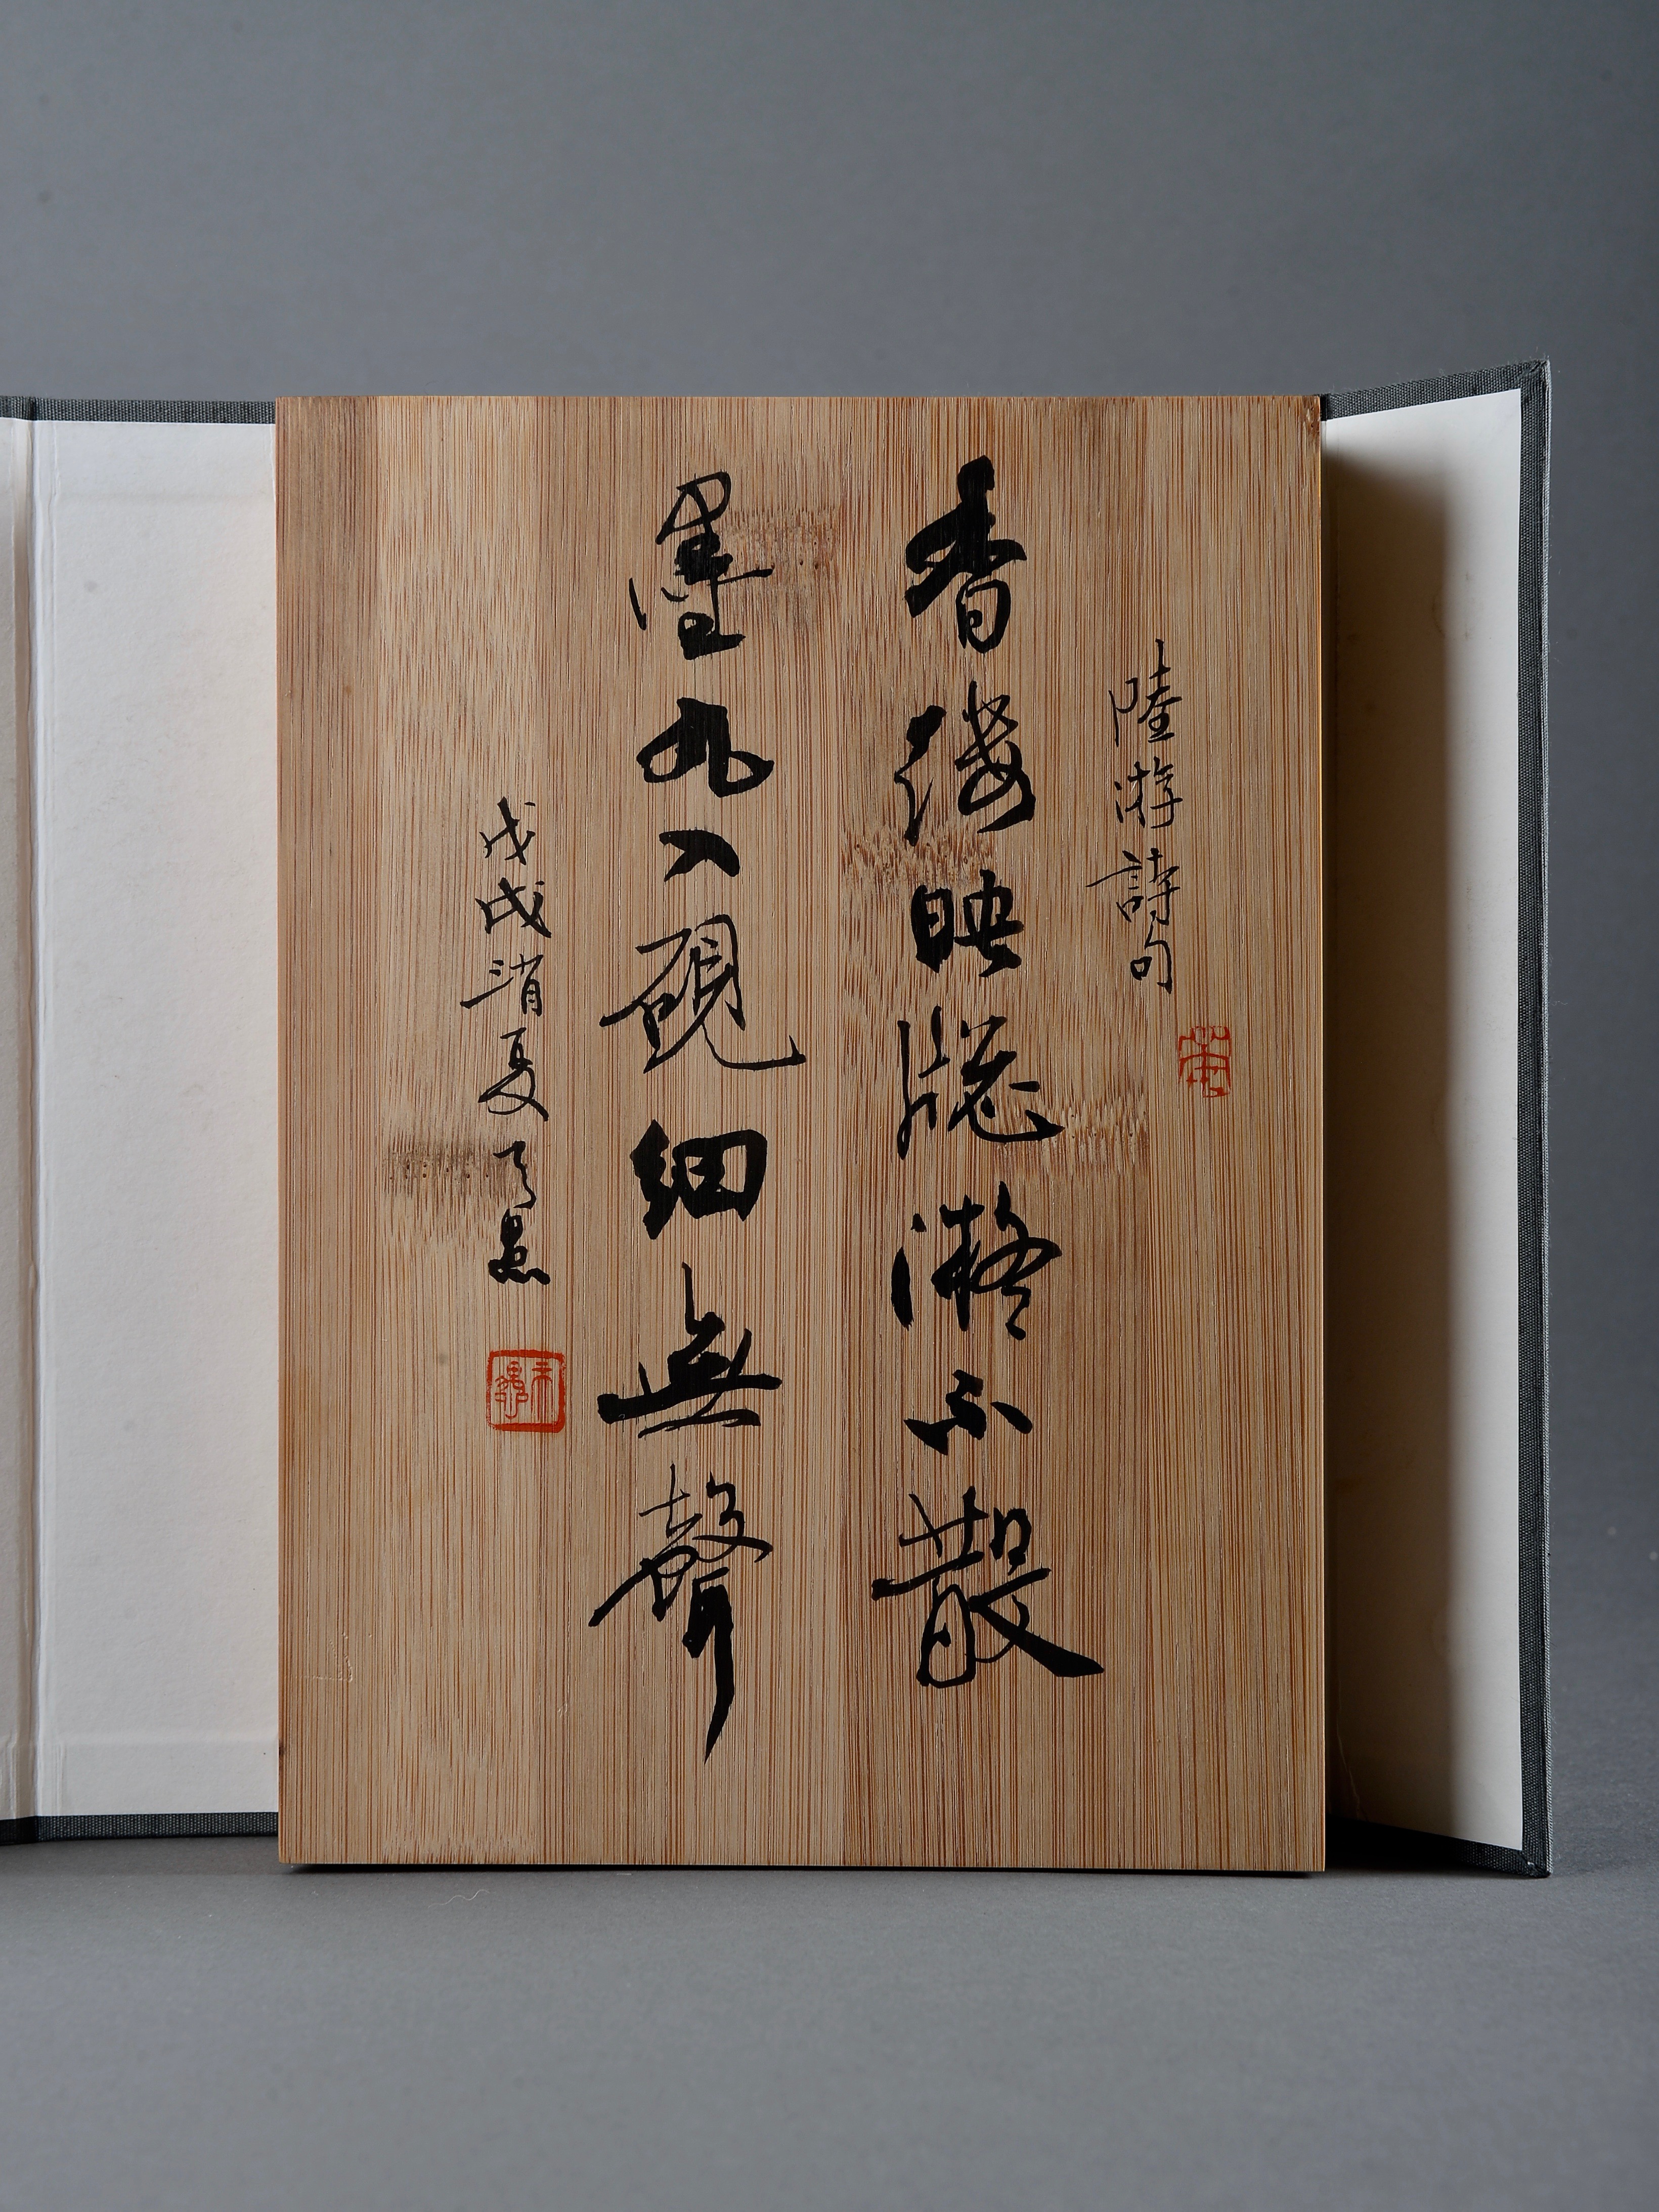 陸游詩句
香縷映牕凝不散
墨丸入硯細無聲
戊戌消夏